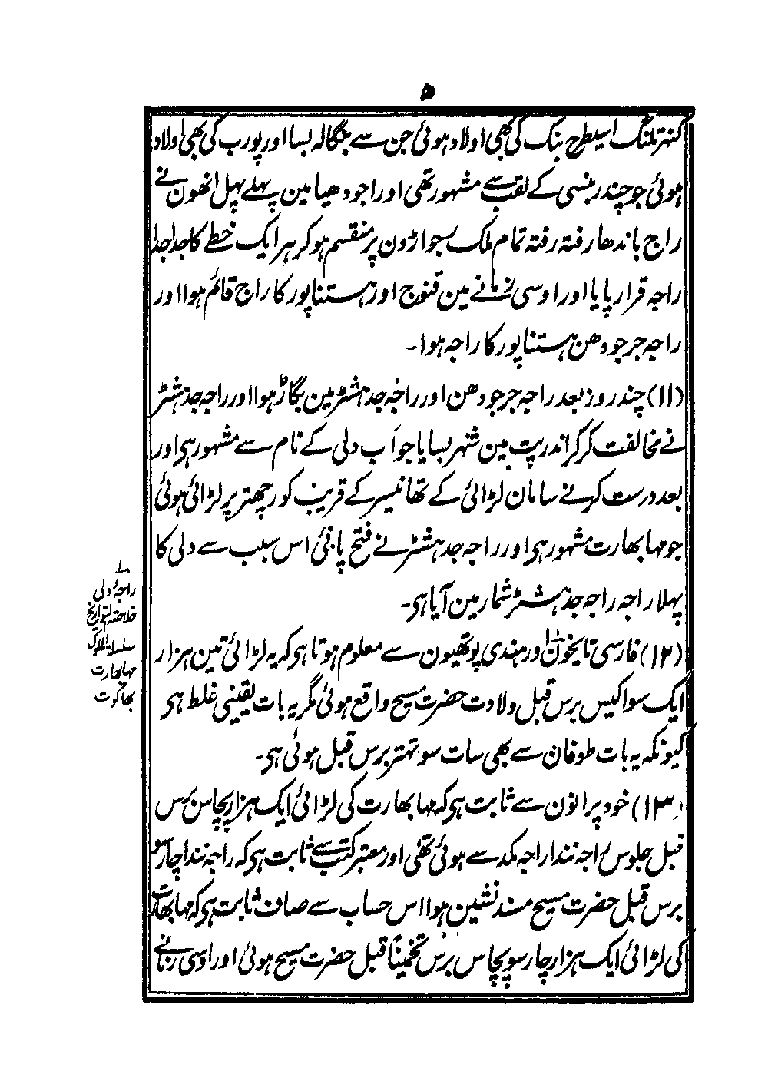 ۵
کنہر تلنگ اسیطرح بنگ کی بھی اولاد ہوئی جن سے بنگالہ بسا اور پورب کی بھی اولاد
ہوئی جو چندر بنسی کے لقب سے مشہور تھی اور اجودھیا مین پہلے پہل انھون نے
راج باندھا رفتہ رفتہ تمام ملک رجواڑون پر منقسم ہو کر ہر ایک خطے کا جدا جدا
راجہ قرار پایا اور اوسی زمانے مین قنوج اور ہستناپور کا راج قائم ہوا اور
راجہ جرجودھن ہستناپور کا راجہ ہوا۔
(۱۱) چند روز بعد راجہ جرجودھن اور راجہ جدہشٹر مین بگاڑ ہوا اور راجہ جدہشٹر
نے مخالفت کر کر اندرپت مین شہر بسایا جو اَب دلی کے نام سے مشہور ہی اور
بعد درست کرنے سامان لڑائی کے تھانیسر کے قریب کورچھتر پر لڑائی ہوئی
جو مہابھارت مشہور ہی اور راجہ جدہشٹر نے فتح پائی اس سبب سے دلی کا
پہلا راجہ راجہ جدہشٹر شمار مین آیا ہی۔
(۱۲) فارسی تاریخون اور ہندی پوتھیون سے معلوم ہوتا ہی کہ یہ لڑائی تین ہزار
ایک سو اکیس برس قبل ولادت حضرت مسیح واقع ہوئی مگر یہ بات یقینی غلط ہی
کیونکہ یہ بات طوفان سے بھی سات سو تہتر برس قبل ہوئی ہی۔
(۱۳) خود پرانون سے ثابت ہی کہ مہابھارت کی لڑائی ایک ہزار پچاس برس
قبل جلوس راجہ نندا راجہ مگد سے ہوئی تھی اور معتبر کتب سے ثابت ہی کہ راجہ نندا چار سو
برس قبل حضرت مسیح مسند نشین ہوا اس حساب سے صاف ثابت ہی کہ مہابھارت
کی لڑائی ایک ہزار چار سو پچاس برس تخمیناً قبل حضرت مسیح ہوئی اور اوسی زمانے
راجہ دلی
خلاصۃ التواریخ
سلسلۃ الملوک
مہابھارت
بھاگوت